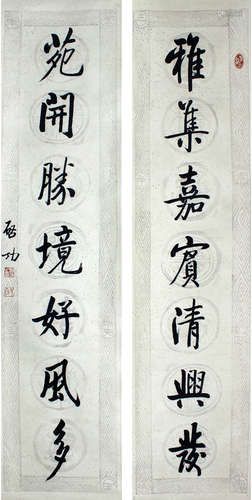 雅集嘉賓清興發
苑開勝境好風多
啓功